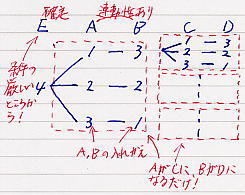 確定 連動性あり
E A B C D
1 — 3
4 2 — 2
3 — 1
1 — 3
2 — 2
3 — 1
条件の
厳しい
ところ
から!
A,Bの入れかえ
AがCに、BがDに
なるだけ!